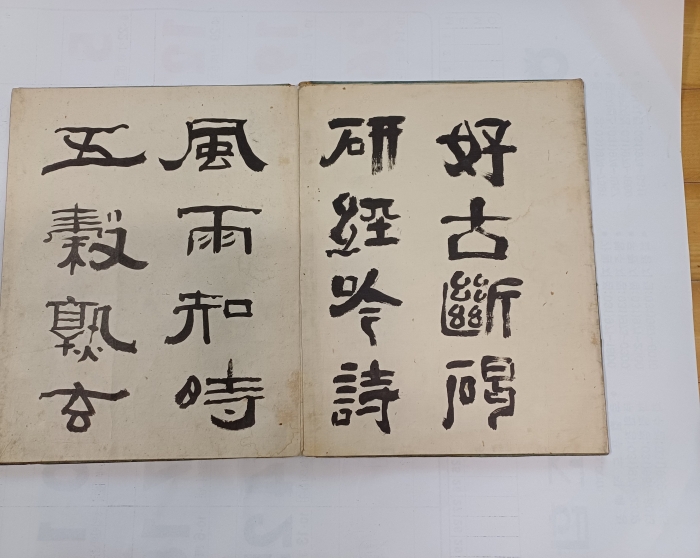 好古斷碣
研經吟詩
風雨知時
五穀熟玄